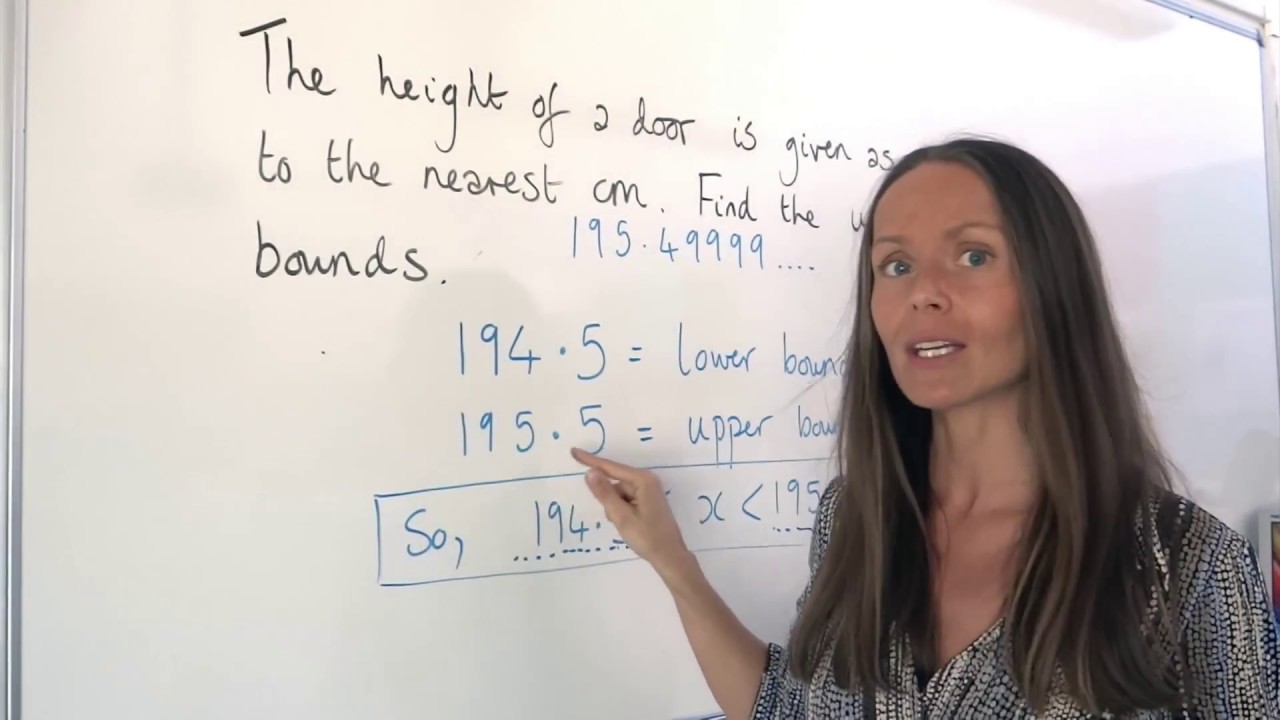 The height of a door is given as
to the nearest cm. Find the
bounds.
195.49999....
194.5 = lower
195.5 = upper
So, 194. x < 195